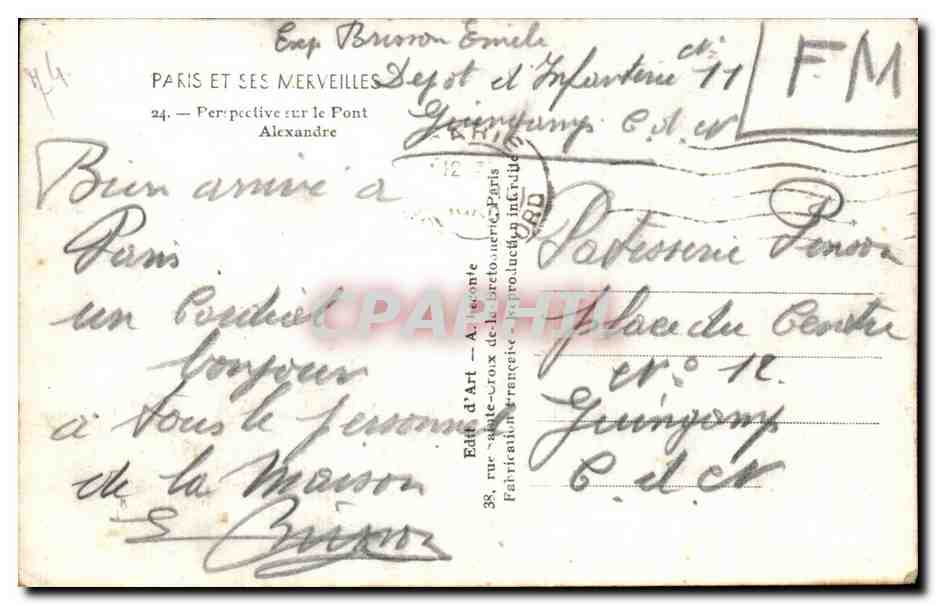 Exp Brisson Emile
Depot d'Infanterie N° 11
Guingamp C. d. N
FM
74
PARIS ET SES MERVEILLES
24. — Perspective sur le Pont
Alexandre
Bien arrivé à
Paris
un Cordial
bonjour
à tous le personnel
de la Maison
E Brisson
PARIS
12
NORD
Edit. d'Art — A. Leconte
38, rue Sainte-Croix de-la-Bretonnerie, Paris
Fabrication Française - Reproduction interdite
CPARHTI
Patisserie
place du Centre
N° 12.
Guingamp
C. d. N